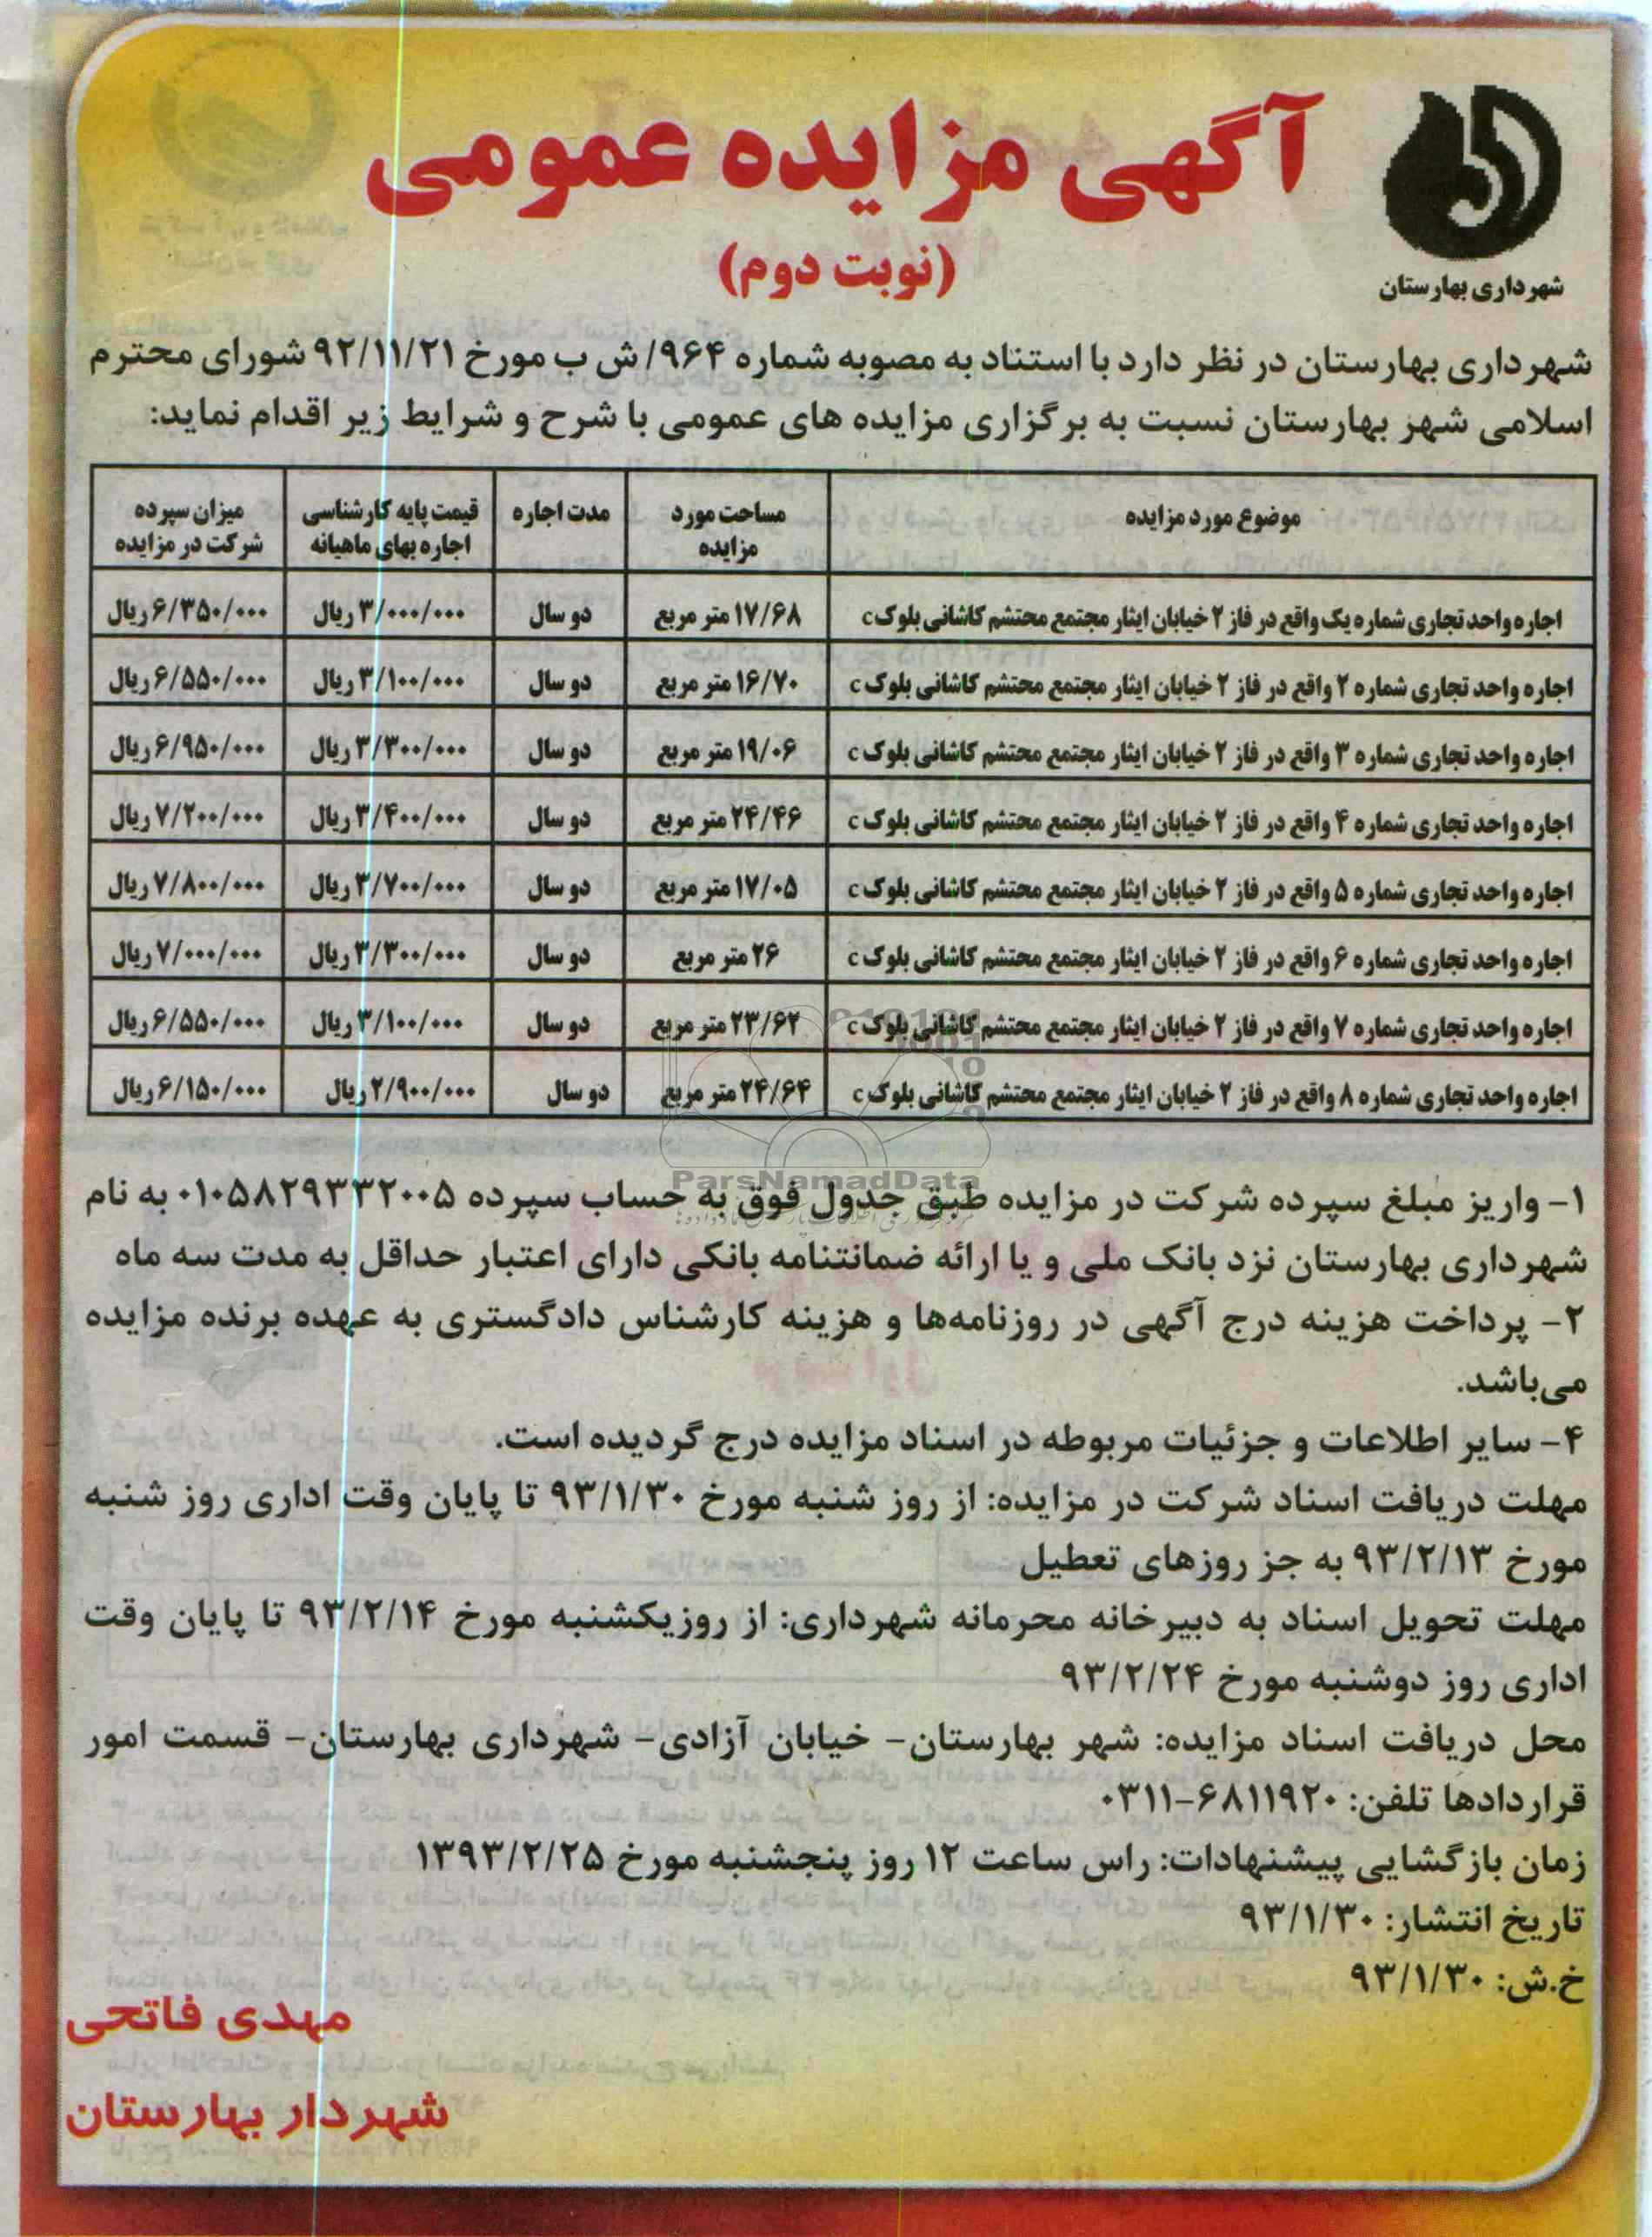 آگهی مزایده عمومی
(نوبت دوم)
شهرداری بهارستان
شهرداری بهارستان در نظر دارد با استناد به مصوبه شماره ۹۶۴/ ش ب مورخ ۹۲/۱۱/۲۱ شورای محترم
اسلامی شهر بهارستان نسبت به برگزاری مزایده های عمومی با شرح و شرایط زیر اقدام نماید:
موضوع مورد مزایده | مساحت مورد مزایده | مدت اجاره | قیمت پایه کارشناسی اجاره بهای ماهیانه | میزان سپرده شرکت در مزایده
اجاره واحد تجاری شماره یک واقع در فاز ۲ خیابان ایثار مجتمع محتشم کاشانی بلوک c | ۱۷/۶۸ متر مربع | دو سال | ۳/۰۰۰/۰۰۰ ریال | ۶/۳۵۰/۰۰۰ ریال
اجاره واحد تجاری شماره ۲ واقع در فاز ۲ خیابان ایثار مجتمع محتشم کاشانی بلوک c | ۱۶/۷۰ متر مربع | دو سال | ۳/۱۰۰/۰۰۰ ریال | ۶/۵۵۰/۰۰۰ ریال
اجاره واحد تجاری شماره ۳ واقع در فاز ۲ خیابان ایثار مجتمع محتشم کاشانی بلوک c | ۱۹/۰۶ متر مربع | دو سال | ۳/۳۰۰/۰۰۰ ریال | ۶/۹۵۰/۰۰۰ ریال
اجاره واحد تجاری شماره ۴ واقع در فاز ۲ خیابان ایثار مجتمع محتشم کاشانی بلوک c | ۲۴/۴۶ متر مربع | دو سال | ۳/۴۰۰/۰۰۰ ریال | ۷/۲۰۰/۰۰۰ ریال
اجاره واحد تجاری شماره ۵ واقع در فاز ۲ خیابان ایثار مجتمع محتشم کاشانی بلوک c | ۱۷/۰۵ متر مربع | دو سال | ۳/۷۰۰/۰۰۰ ریال | ۷/۸۰۰/۰۰۰ ریال
اجاره واحد تجاری شماره ۶ واقع در فاز ۲ خیابان ایثار مجتمع محتشم کاشانی بلوک c | ۲۶ متر مربع | دو سال | ۳/۳۰۰/۰۰۰ ریال | ۷/۰۰۰/۰۰۰ ریال
اجاره واحد تجاری شماره ۷ واقع در فاز ۲ خیابان ایثار مجتمع محتشم کاشانی بلوک c | ۲۳/۶۲ متر مربع | دو سال | ۳/۱۰۰/۰۰۰ ریال | ۶/۵۵۰/۰۰۰ ریال
اجاره واحد تجاری شماره ۸ واقع در فاز ۲ خیابان ایثار مجتمع محتشم کاشانی بلوک c | ۲۴/۶۴ متر مربع | دو سال | ۲/۹۰۰/۰۰۰ ریال | ۶/۱۵۰/۰۰۰ ریال
ParsNamadData
۱- واریز مبلغ سپرده شرکت در مزایده طبق جدول فوق به حساب سپرده ۰۱۰۵۸۲۹۳۳۲۰۰۵ به نام
شهرداری بهارستان نزد بانک ملی و یا ارائه ضمانتنامه بانکی دارای اعتبار حداقل به مدت سه ماه
۲- پرداخت هزینه درج آگهی در روزنامه‌ها و هزینه کارشناس دادگستری به عهده برنده مزایده
می‌باشد.
۴- سایر اطلاعات و جزئیات مربوطه در اسناد مزایده درج گردیده است.
مهلت دریافت اسناد شرکت در مزایده: از روز شنبه مورخ ۹۳/۱/۳۰ تا پایان وقت اداری روز شنبه
مورخ ۹۳/۲/۱۳ به جز روزهای تعطیل
مهلت تحویل اسناد به دبیرخانه محرمانه شهرداری: از روزیکشنبه مورخ ۹۳/۲/۱۴ تا پایان وقت
اداری روز دوشنبه مورخ ۹۳/۲/۲۴
محل دریافت اسناد مزایده: شهر بهارستان- خیابان آزادی- شهرداری بهارستان- قسمت امور
قراردادها تلفن: ۶۸۱۱۹۲۰-۰۳۱۱
زمان بازگشایی پیشنهادات: راس ساعت ۱۲ روز پنجشنبه مورخ ۱۳۹۳/۲/۲۵
تاریخ انتشار: ۹۳/۱/۳۰
خ.ش: ۹۳/۱/۳۰
مهدی فاتحی
شهردار بهارستان